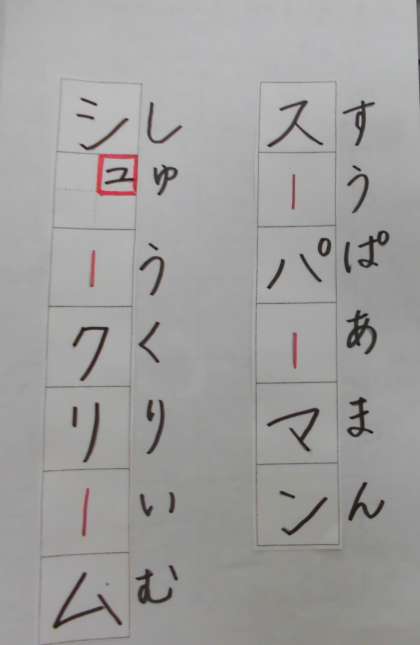 スーパーマン
すうぱあまん
シュークリーム
しゅうくりいむ